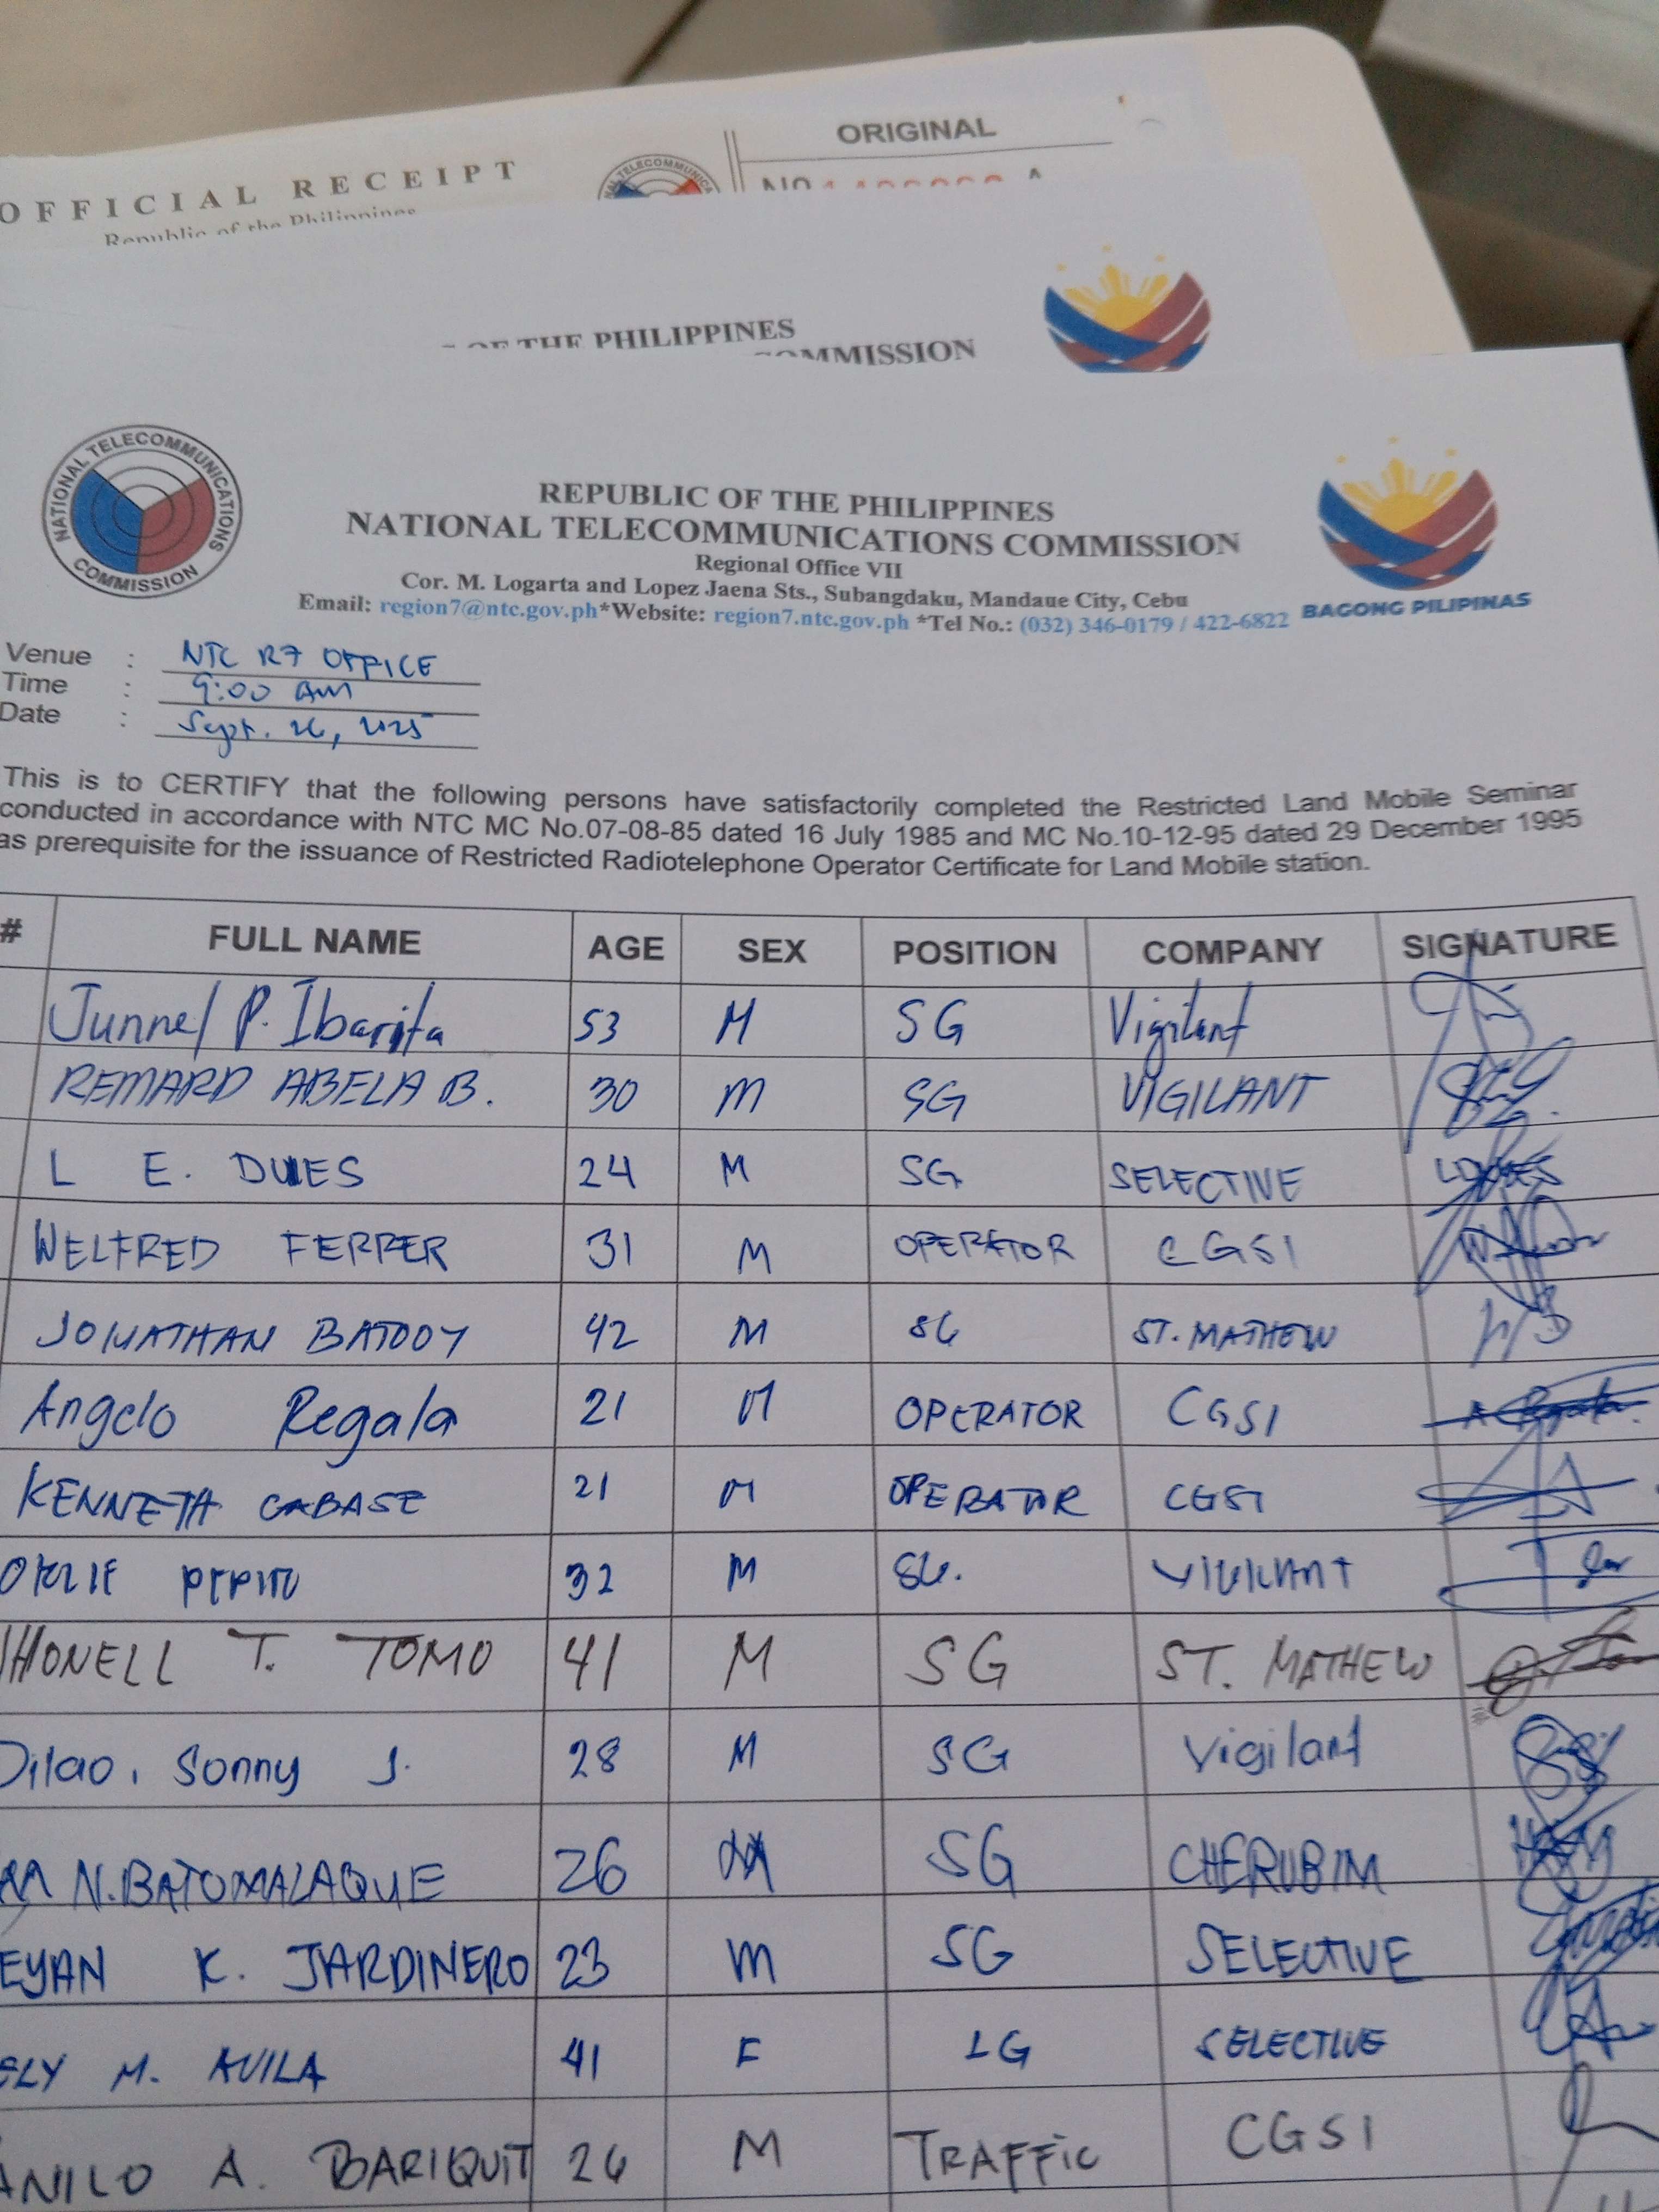 OFFICIAL RECEIPT
Republic of the Philippines
ORIGINAL
NO
OF THE PHILIPPINES
COMMISSION
NATIONAL TELECOMMUNICATIONS COMMISSION
REPUBLIC OF THE PHILIPPINES
NATIONAL TELECOMMUNICATIONS COMMISSION
Regional Office VII
Cor. M. Logarta and Lopez Jaena Sts., Subangdaku, Mandaue City, Cebu
Email: region7@ntc.gov.ph*Website: region7.ntc.gov.ph *Tel No.: (032) 346-0179 / 422-6822
BAGONG PILIPINAS
Venue : NTC R7 OFFICE
Time : 9:00 AM
Date : Sept. 26, 2025
This is to CERTIFY that the following persons have satisfactorily completed the Restricted Land Mobile Seminar
conducted in accordance with NTC MC No.07-08-85 dated 16 July 1985 and MC No.10-12-95 dated 29 December 1995
as prerequisite for the issuance of Restricted Radiotelephone Operator Certificate for Land Mobile station.
# FULL NAME AGE SEX POSITION COMPANY SIGNATURE
Junnel P. Ibarita 53 M SG Vigilant
REMARD ABELA B. 30 M SG VIGILANT
L E. 24 M SG SELECTIVE
WELFRED FERRER 31 M OPERATOR CGSI
JONATHAN BATOOY 42 M SG ST. MATHEW
Angelo Regala 21 M OPERATOR CGSI
KENNETH CABASE 21 M OPERATOR CGSI
PEPITO 32 M SG. VIGILANT
HONELL T. TOMO 41 M SG ST. MATHEW
Dilao, Sonny J. 28 M SG Vigilant
N. BATOMALAQUE 26 M SG CHERUBIM
EYAN K. JARDINERO 23 M SG SELECTIVE
ELY M. AVILA 41 F LG SELECTIVE
ANILO A. BARIQUIT 26 M TRAFFIC CGSI